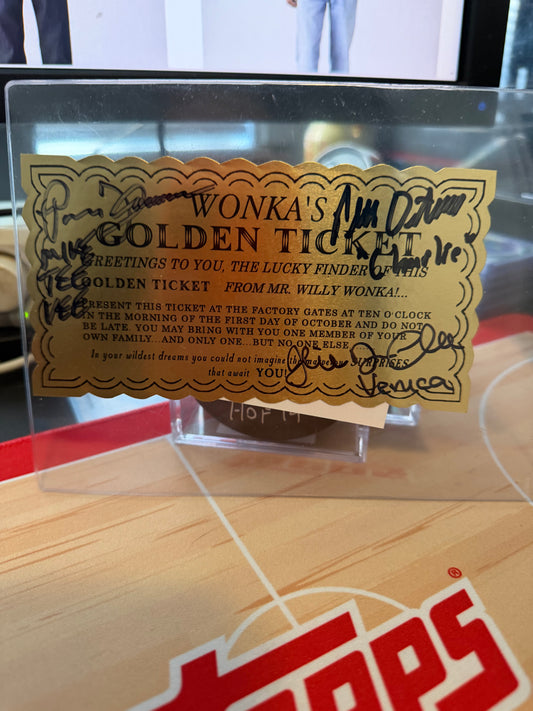 WONKA'S
GOLDEN TICKET
GREETINGS TO YOU, THE LUCKY FINDER OF THIS
GOLDEN TICKET FROM MR. WILLY WONKA!...
PRESENT THIS TICKET AT THE FACTORY GATES AT TEN O'CLOCK
IN THE MORNING OF THE FIRST DAY OF OCTOBER AND DO NOT
BE LATE. YOU MAY BRING WITH YOU ONE MEMBER OF YOUR
OWN FAMILY...AND ONLY ONE...BUT NO ONE ELSE
In your wildest dreams you could not imagine the marvelous SURPRISES
that await YOU!
MIKE
TEE
VEE
"Charlie"
Veruca
HOF
®
TOPPS